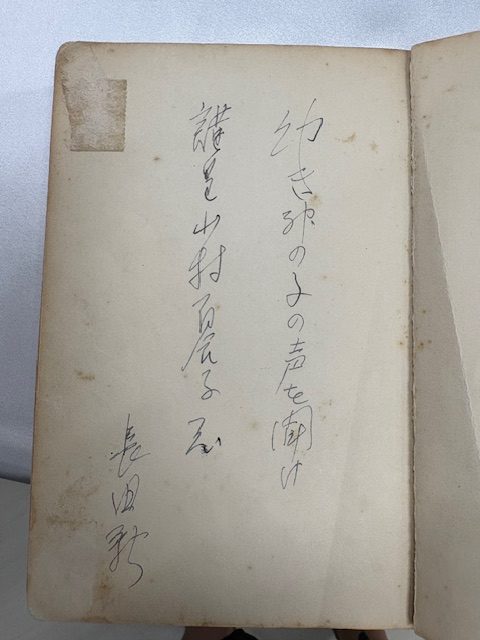 幼き神の子の声を聞け
謹呈 山村百合子 君
長田新